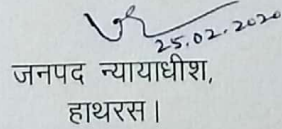 25.02.2020
जनपद न्यायाधीश,
हाथरस।